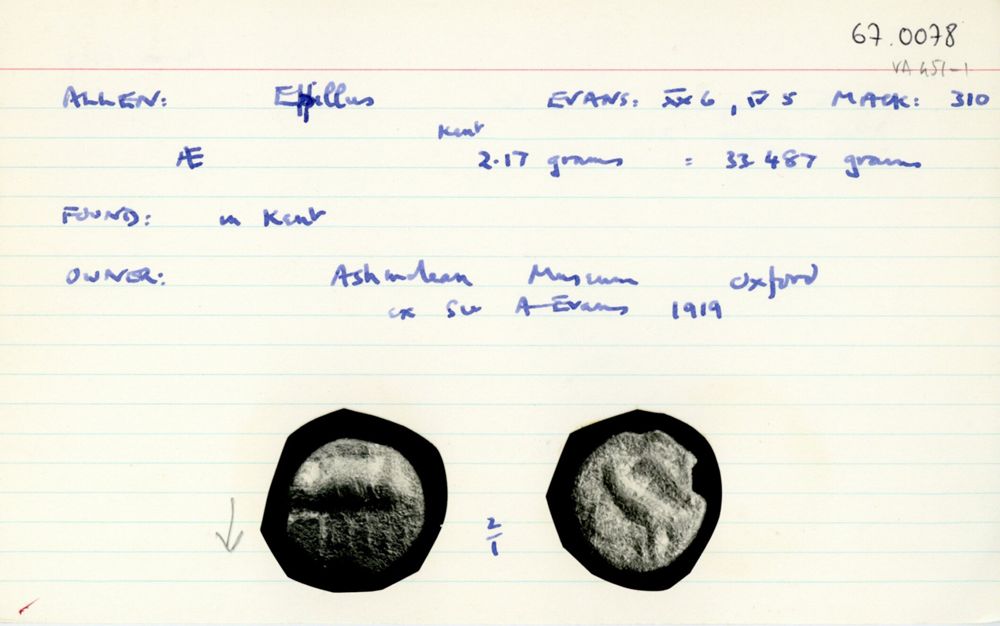 67.0078
VA 451-1
ALLEN: Eppillus EVANS: XX 6, IV 5 MACK: 310
Kent
Æ 2.17 grams = 33.487 grams
FOUND: in Kent
OWNER: Ashmolean Museum Oxford
ex Sir A Evans 1919
2
1